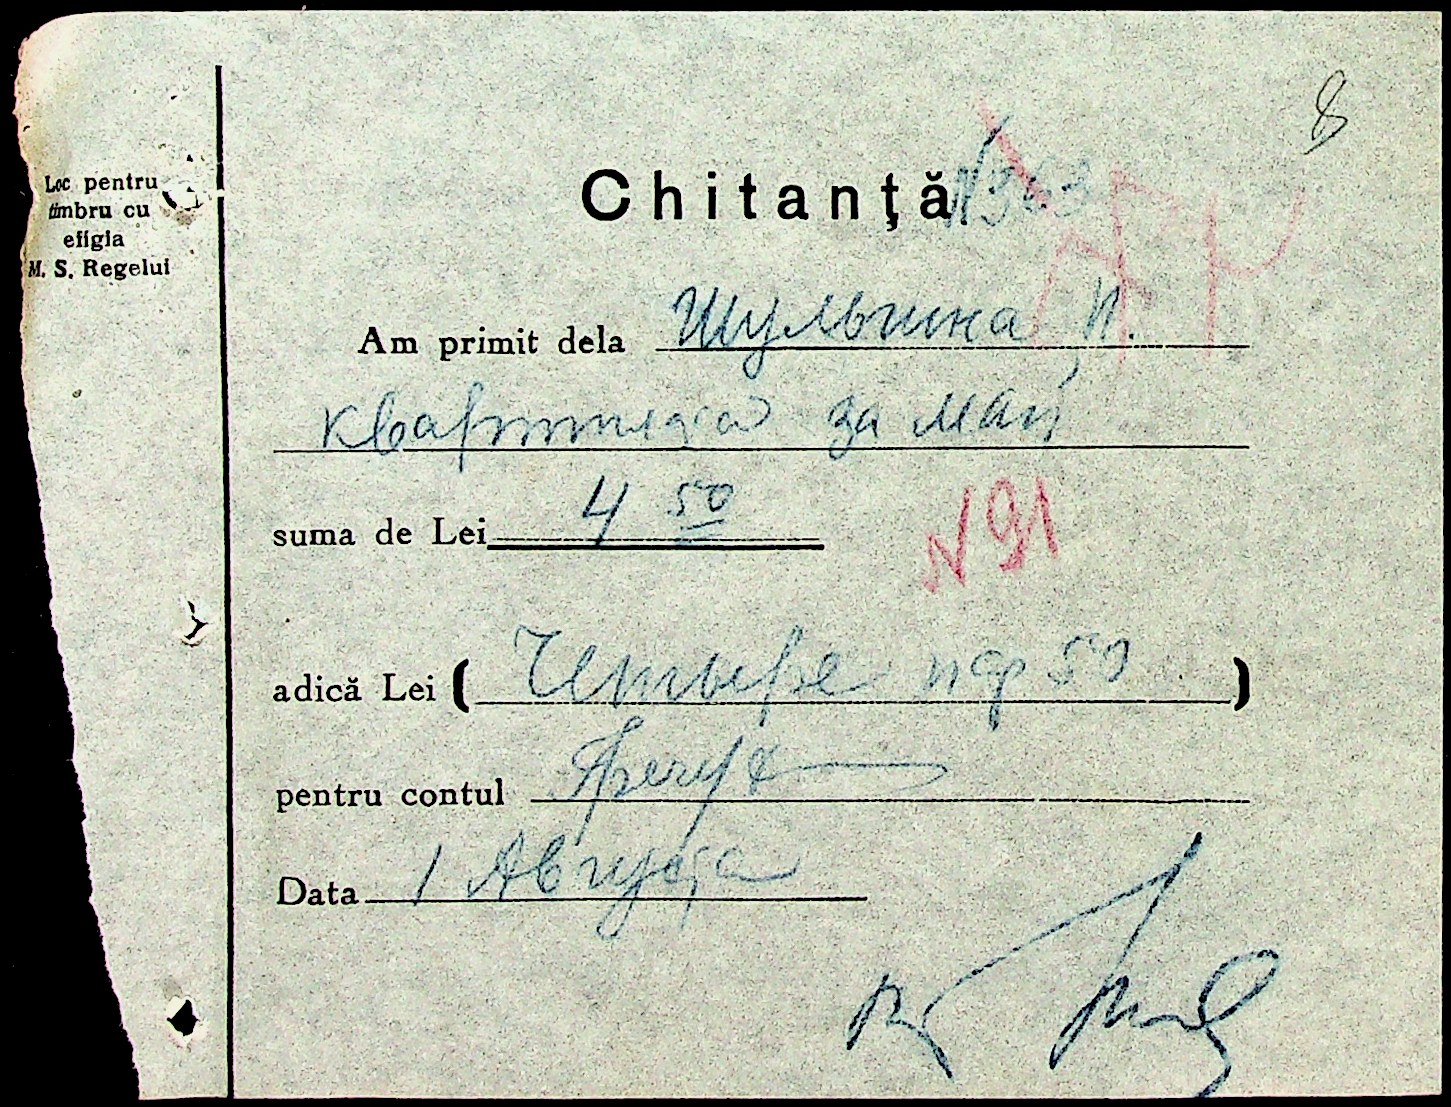 8
Loc pentru
timbru cu
efigia
M. S. Regelui
Chitanţă № 363
Am primit dela Шульгина И.
квартплата за май
suma de Lei 4 50
№ 91
adică Lei ( Четыре 50 )
pentru contul
Data 1 Августа